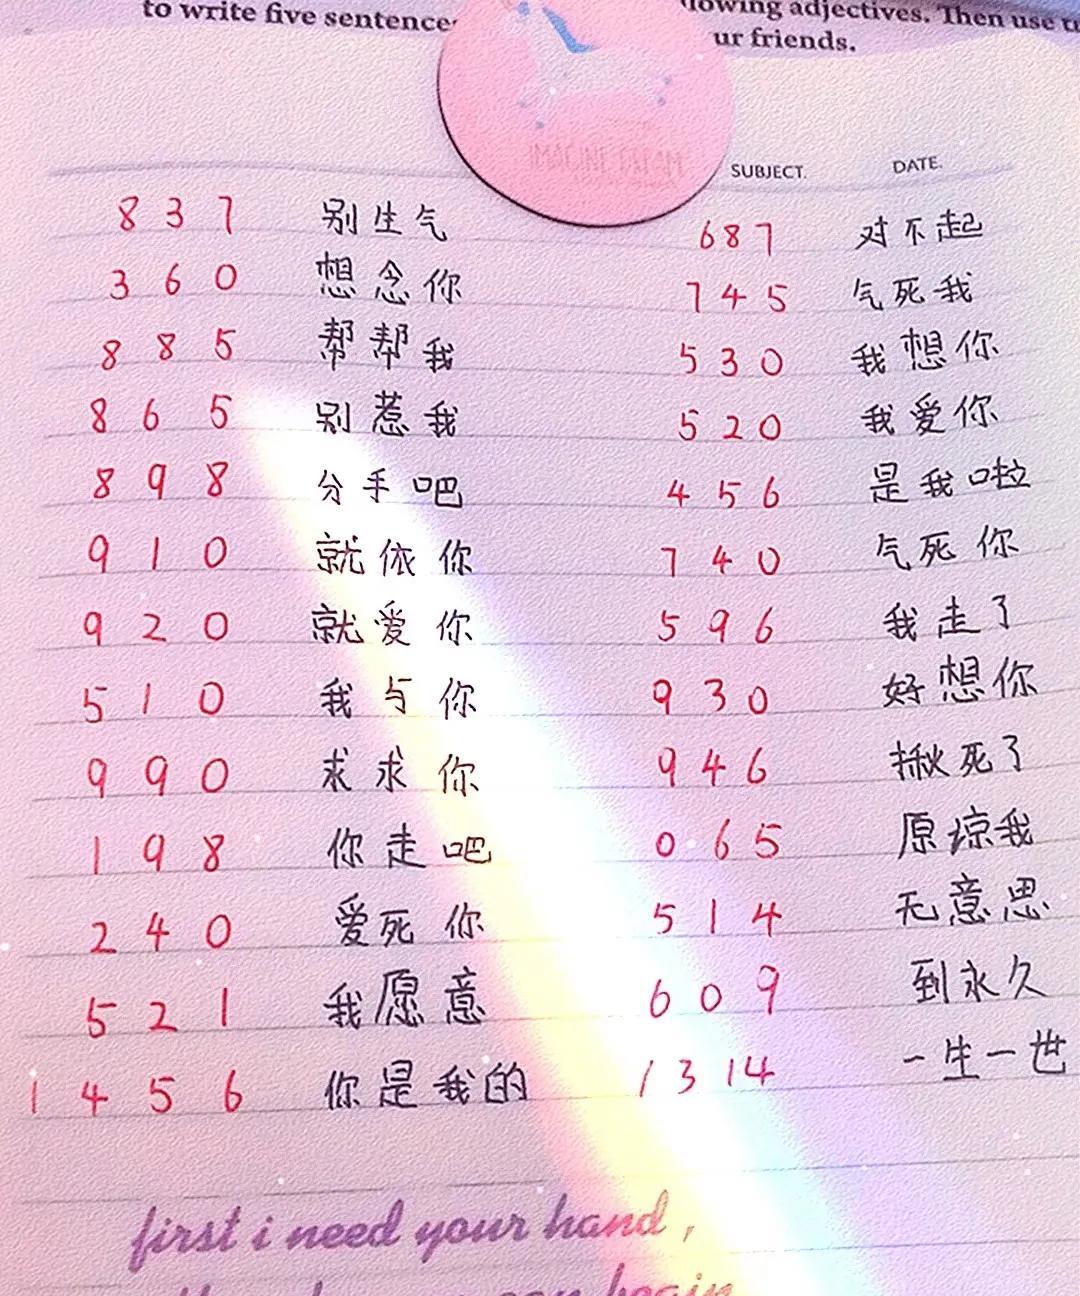 to write five sentence
lowing adjectives. Then use
ur friends.
IMAGINE
SUBJECT.
DATE.
837 别生气
360 想念你
885 帮帮我
865 别惹我
898 分手吧
910 就依你
920 就爱你
510 我与你
990 求求你
198 你走吧
240 爱死你
521 我愿意
1456 你是我的
687 对不起
745 气死我
530 我想你
520 我爱你
456 是我啦
740 气死你
596 我走了
930 好想你
946 揪死了
065 原谅我
514 无意思
609 到永久
1314 一生一世
first i need your hand,
begin